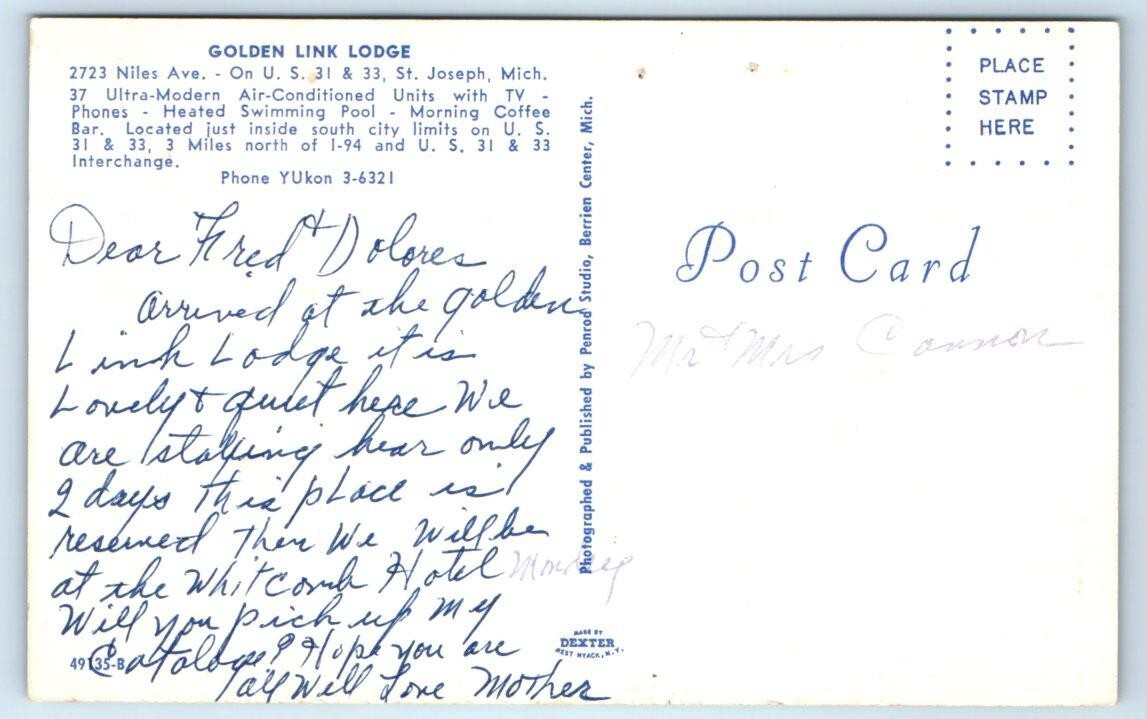 GOLDEN LINK LODGE
2723 Niles Ave. - On U. S. 31 & 33, St. Joseph, Mich.
37 Ultra-Modern Air-Conditioned Units with TV -
Phones - Heated Swimming Pool - Morning Coffee
Bar. Located just inside south city limits on U. S.
31 & 33, 3 Miles north of I-94 and U. S. 31 & 33
Interchange.
Phone YUkon 3-6321
Dear Fred & Dolores
arrived at the golden
Link Lodge it is
Lovely & quiet here We
are staying hear only
2 days this place is
reserved then We Will be
at the Whitcomb Hotel Monday
Will you pick up my
Cataloge? Hope you are
all Well Love Mother
49135-B
Photographed & Published by Penrod Studio, Berrien Center, Mich.
MADE BY
DEXTER
WEST NYACK, N.Y.
PLACE
STAMP
HERE
Post Card
Mr & Mrs Cannon